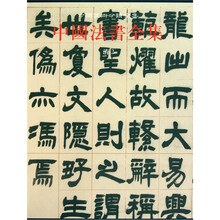 中國法書全集
龍出而大易興
耀故繇辭稱
聖人則之謂
世夐文隱好生
矣偽亦馮焉